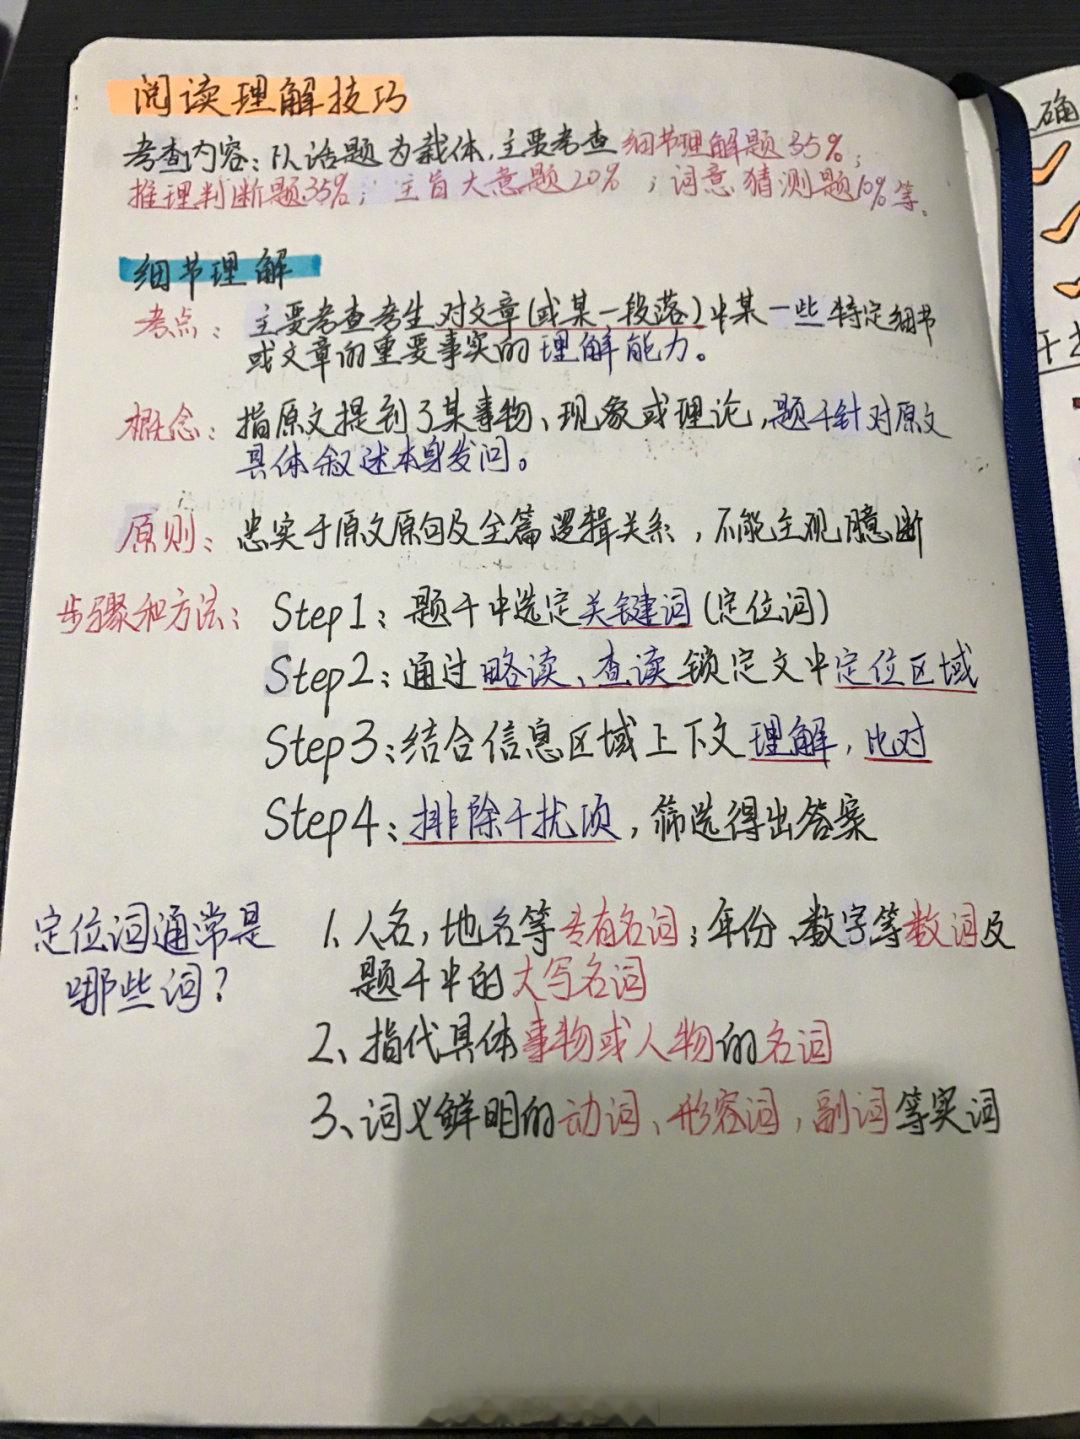 阅读理解技巧
考查内容：以话题为载体，主要考查细节理解题35%；
推理判断题35%；主旨大意题20%；词意猜测题10%等。
细节理解
考点：主要考查考生对文章(或某一段落)中某一些特定细节
或文章的重要事实的理解能力。
概念：指原文提到了某事物、现象或理论，题干针对原文
具体叙述本身发问。
原则：忠实于原文原句及全篇逻辑关系，不能主观臆断
步骤和方法：Step1：题干中选定关键词(定位词)
Step2：通过略读、查读锁定文中定位区域
Step3：结合信息区域上下文理解，比对
Step4：排除干扰项，筛选得出答案
定位词通常是
哪些词？
1、人名，地名等专有名词；年份、数字等数词及
题干中的大写名词
2、指代具体事物或人物的名词
3、词义鲜明的动词、形容词，副词等实词
确